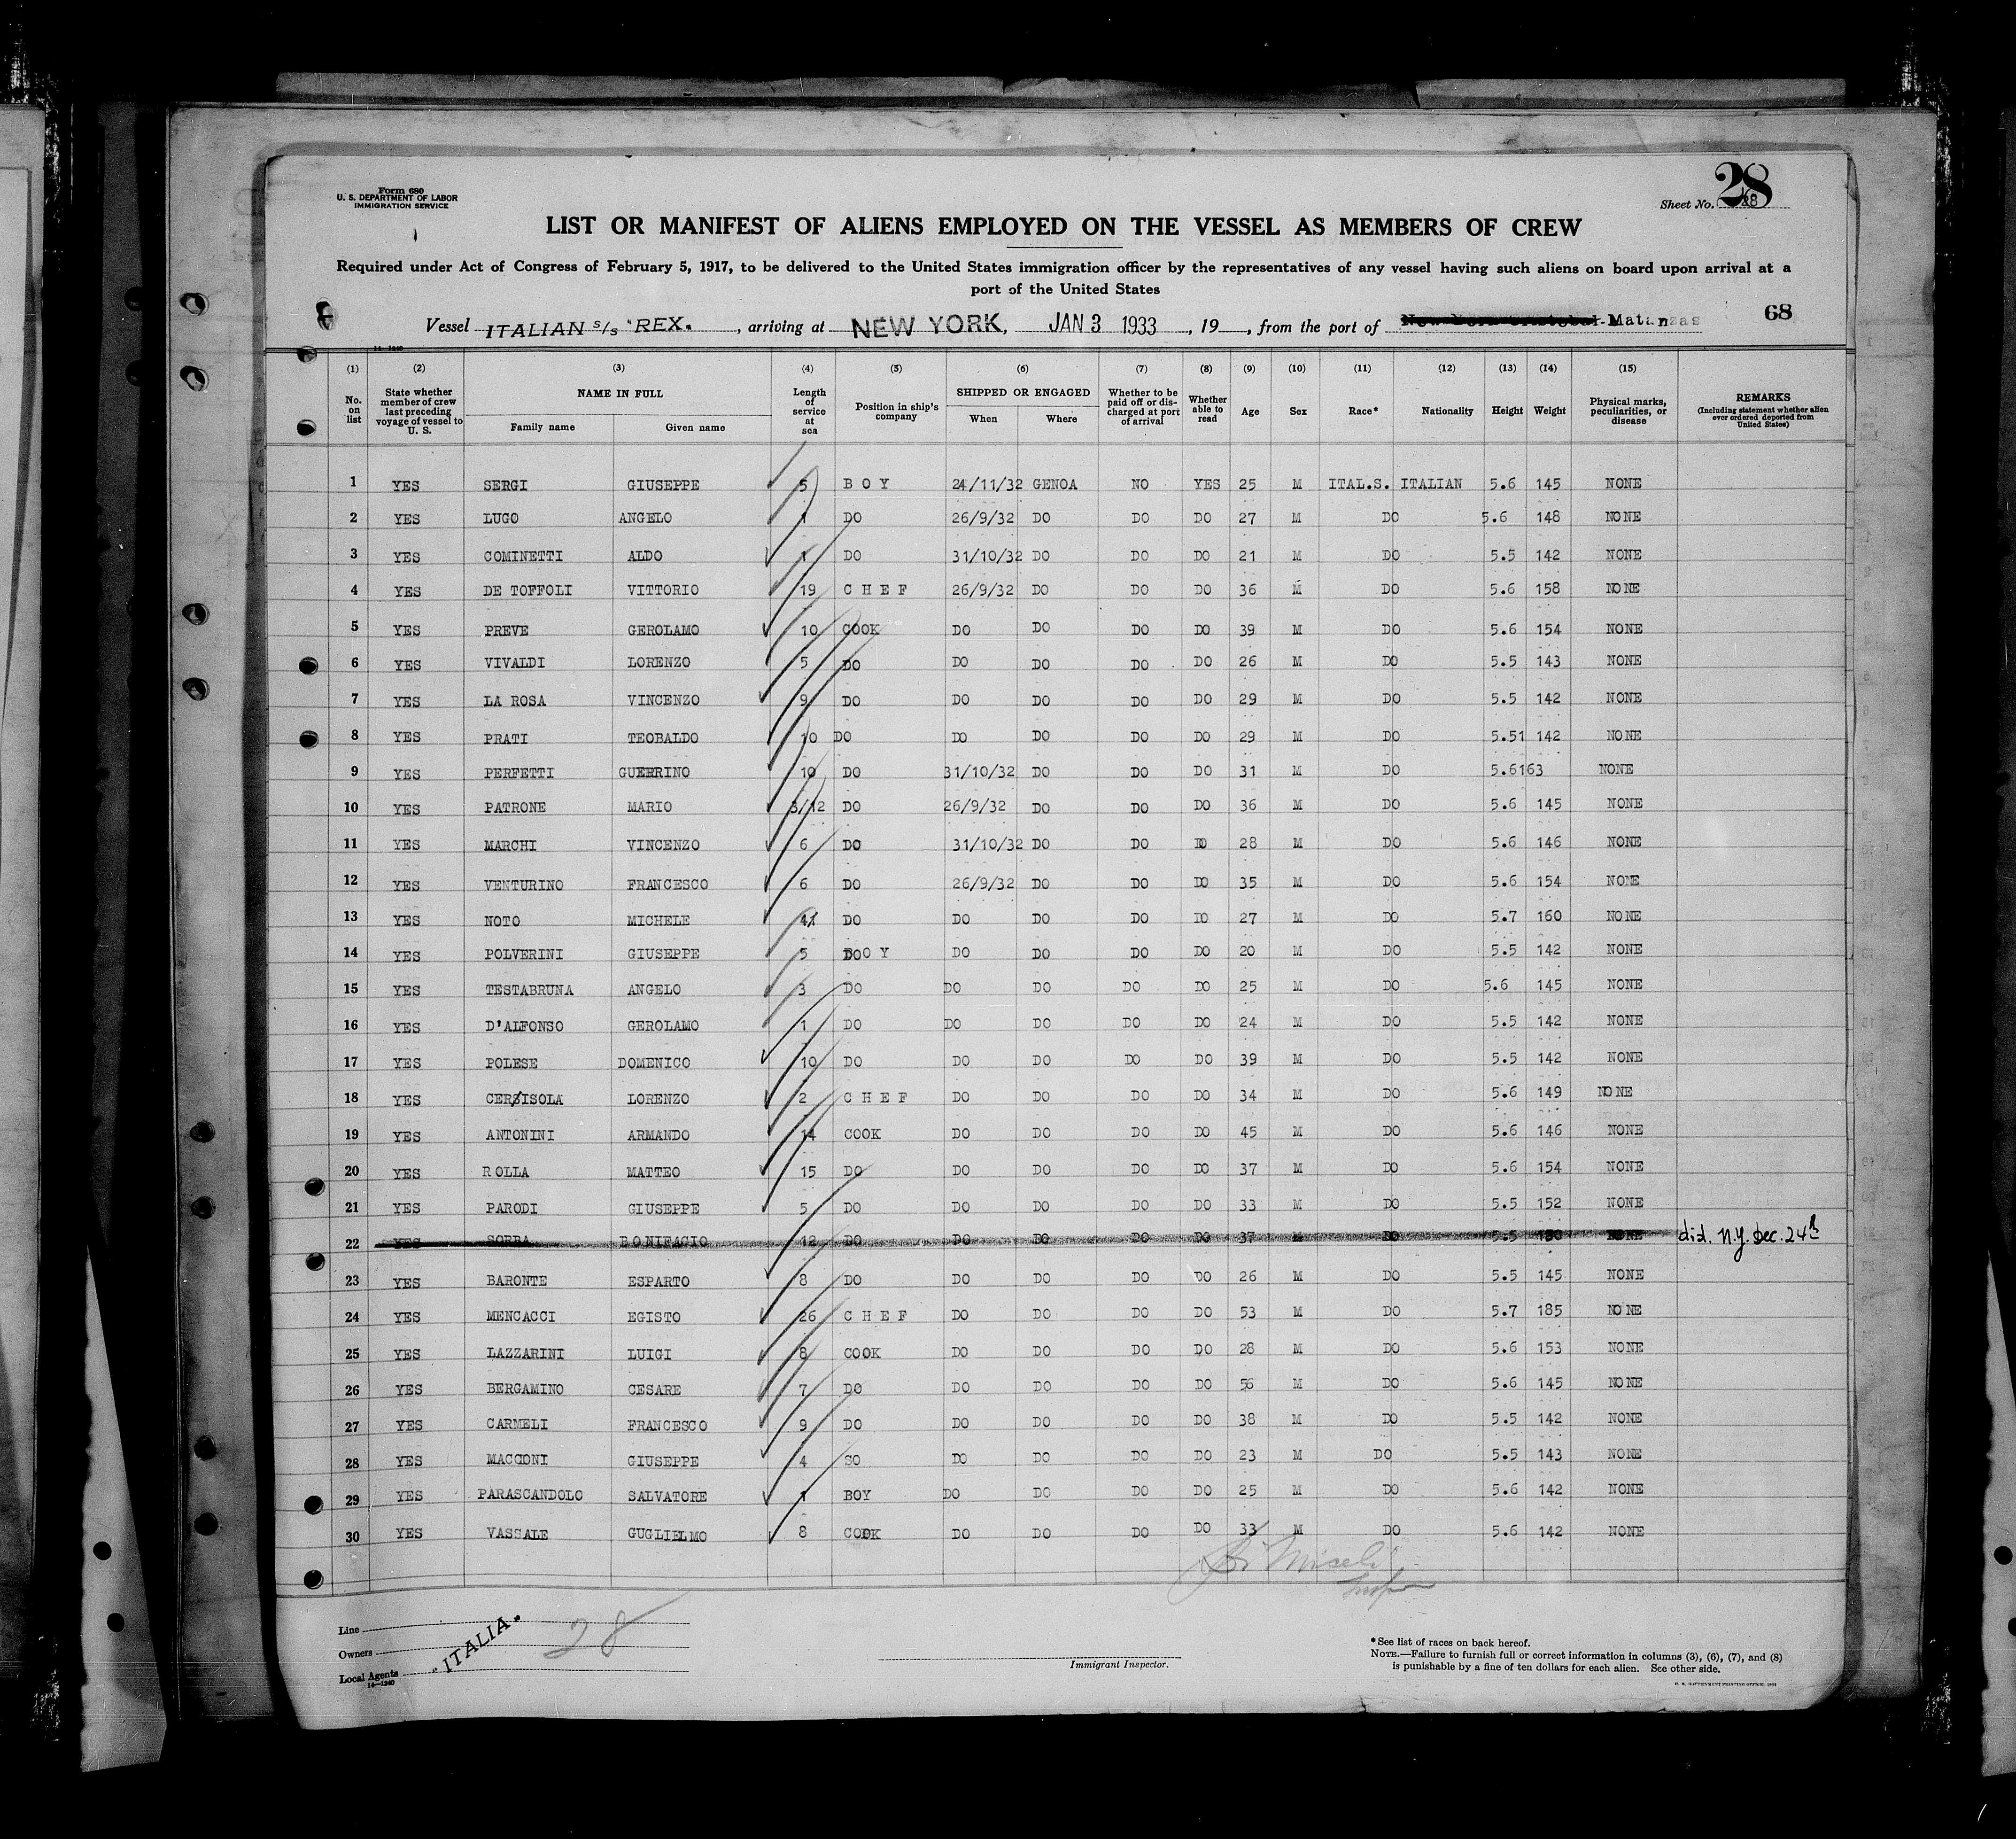 Form 680
U. S. DEPARTMENT OF LABOR
IMMIGRATION SERVICE
28
Sheet No. 28
LIST OR MANIFEST OF ALIENS EMPLOYED ON THE VESSEL AS MEMBERS OF CREW
Required under Act of Congress of February 5, 1917, to be delivered to the United States immigration officer by the representatives of any vessel having such aliens on board upon arrival at a
port of the United States
Vessel ITALIAN s/s "REX. , arriving at NEW YORK, JAN 3 1933 , 19 , from the port of Matanzas 68
14-1240
(1) (2) (3) (4) (5) (6) (7) (8) (9) (10) (11) (12) (13) (14) (15)
No. on list State whether member of crew last preceding voyage of vessel to U. S. NAME IN FULL Family name Given name Length of service at sea Position in ship's company SHIPPED OR ENGAGED When Where Whether to be paid off or discharged at port of arrival Whether able to read Age Sex Race* Nationality Height Weight Physical marks, peculiarities, or disease REMARKS (Including statement whether alien ever ordered deported from United States)
1 YES SERGI GIUSEPPE 5 B O Y 24/11/32 GENOA NO YES 25 M ITAL.S. ITALIAN 5.6 145 NONE
2 YES LUGO ANGELO 1 DO 26/9/32 DO DO DO 27 M DO 5.6 148 NONE
3 YES COMINETTI ALDO 1 DO 31/10/32 DO DO DO 21 M DO 5.5 142 NONE
4 YES DE TOFFOLI VITTORIO 19 C H E F 26/9/32 DO DO DO 36 M DO 5.6 158 NONE
5 YES PREVE GEROLAMO 10 COOK DO DO DO DO 39 M DO 5.6 154 NONE
6 YES VIVALDI LORENZO 5 DO DO DO DO DO 26 M DO 5.5 143 NONE
7 YES LA ROSA VINCENZO 9 DO DO DO DO DO 29 M DO 5.5 142 NONE
8 YES PRATI TEOBALDO 10 DO DO DO DO DO 29 M DO 5.51 142 NONE
9 YES PERFETTI GUERRINO 10 DO 31/10/32 DO DO DO 31 M DO 5.6163 NONE
10 YES PATRONE MARIO 3/12 DO 26/9/32 DO DO DO 36 M DO 5.6 145 NONE
11 YES MARCHI VINCENZO 6 DO 31/10/32 DO DO DO 28 M DO 5.6 146 NONE
12 YES VENTURINO FRANCESCO 6 DO 26/9/32 DO DO DO 35 M DO 5.6 154 NONE
13 YES NOTO MICHELE DO DO DO DO DO 27 M DO 5.7 160 NONE
14 YES POLVERINI GIUSEPPE 5 BOY DO DO DO DO 20 M DO 5.5 142 NONE
15 YES TESTABRUNA ANGELO 3 DO DO DO DO DO 25 M DO 5.6 145 NONE
16 YES D'ALFONSO GEROLAMO 1 DO DO DO DO DO 24 M DO 5.5 142 NONE
17 YES POLESE DOMENICO 10 DO DO DO DO DO 39 M DO 5.5 142 NONE
18 YES LORENZO 2 C H E F DO DO DO DO 34 M DO 5.6 149 NONE
19 YES ANTONINI ARMANDO 14 COOK DO DO DO DO 45 M DO 5.6 146 NONE
20 YES ROLLA MATTEO 15 DO DO DO DO DO 37 M DO 5.6 154 NONE
21 YES PARODI GIUSEPPE 5 DO DO DO DO DO 33 M DO 5.5 152 NONE
22 YES SORBA BONIFAGIO 12 DO DO DO DO DO 37 M DO 5.5 NONE did. N.Y. Dec. 24th
23 YES BARONTE ESPARTO 8 DO DO DO DO DO 26 M DO 5.5 145 NONE
24 YES MENCACCI EGISTO 26 C H E F DO DO DO DO 53 M DO 5.7 185 NONE
25 YES LAZZARINI LUIGI 8 COOK DO DO DO DO 28 M DO 5.6 153 NONE
26 YES BERGAMINO CESARE 7 DO DO DO DO DO 56 M DO 5.6 145 NONE
27 YES CARMELI FRANCESCO 9 DO DO DO DO DO 38 M DO 5.5 142 NONE
28 YES MACCONI GIUSEPPE 4 SO DO DO DO DO 23 M DO 5.5 143 NONE
29 YES PARASCANDOLO SALVATORE 1 BOY DO DO DO DO 25 M DO 5.6 142 NONE
30 YES VASSALE GUGLIELMO 8 COOK DO DO DO DO 33 M DO 5.6 142 NONE
Line
Owners
Local Agents
"ITALIA"
28
14-1240
Immigrant Inspector.
*See list of races on back hereof.
NOTE.—Failure to furnish full or correct information in columns (3), (6), (7), and (8)
is punishable by a fine of ten dollars for each alien. See other side.